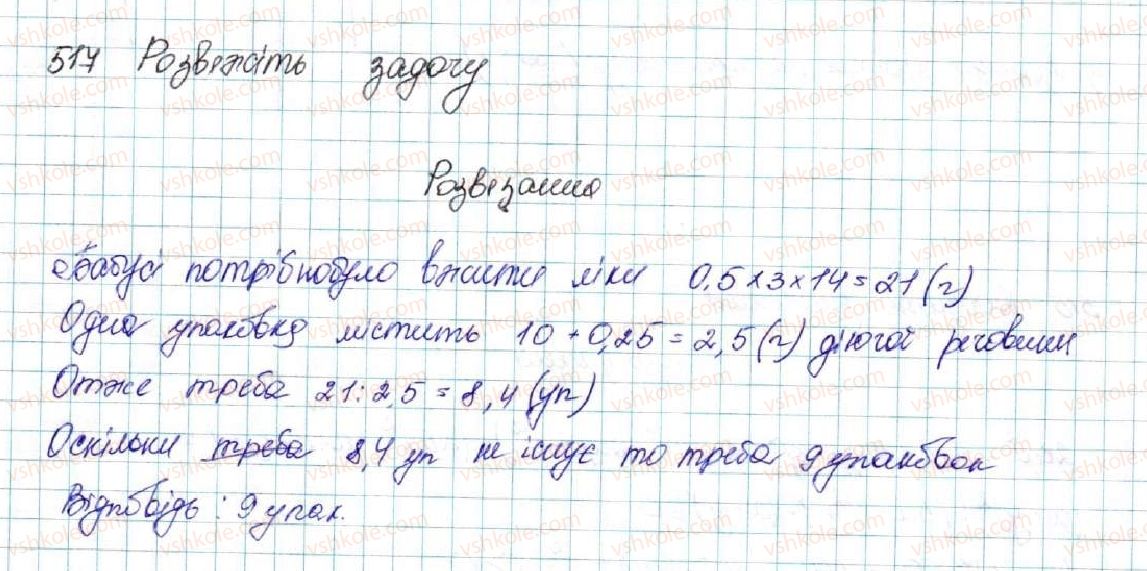 517 Розвяжіть задачу
Розвязання
Бабусі потрібно було вжити ліки 0,5 × 3 × 14 = 21 (г)
Одна упаковка містить 10 + 0,25 = 2,5 (г) діючої речовини
Отже треба 21 : 2,5 = 8,4 (уп)
Оскільки треба 8,4 уп не існує то треба 9 упаковок
Відповідь : 9 упак.